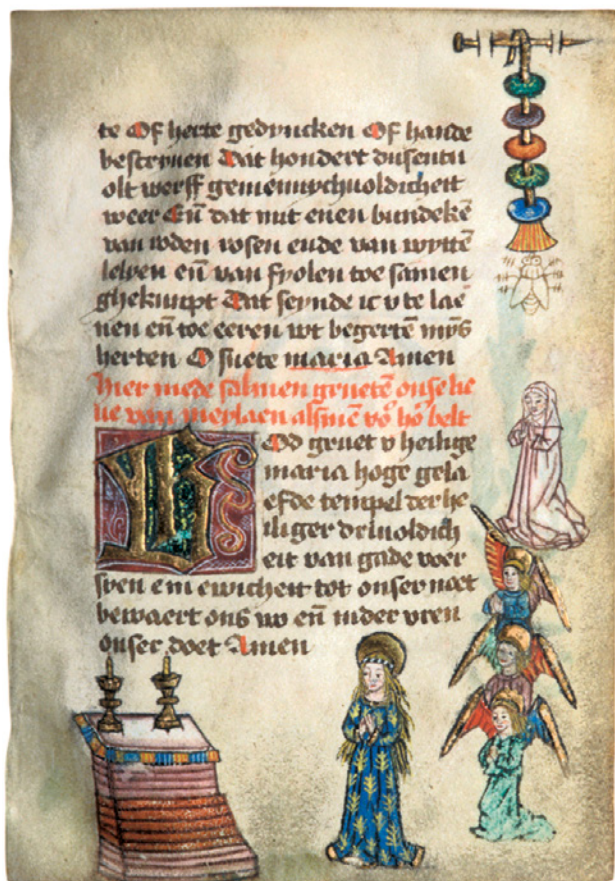 te Of herte gedencken Of hande
bescriuen Dat hondert dusentu
olt werff gemennychuoldicheit
weer Eñ dat mit enen bundekẽ
van roden rosen ende van wyttẽ
lelyen eñ van fyolen toe samen
gheknupt Dat seynde ic v te lae
uen eñ toe eeren wt begertẽ mÿs
herten O suete maria Amen
hier mede salmen gruetẽ onse lie
ue van meylaen alsmẽ võ hõ belt
God gruet v heilige
maria hoge gela
efde tempel der he
iliger driuoldich
eit van gade voer
sien ein ewicheit tot onser noet
bewaert ons nv eñ inder vren
onser doet Amen